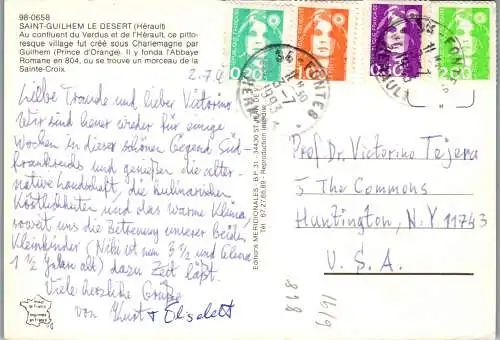 98-0658
SAINT-GUILHEM LE DESERT (Hérault)
Au confluent du Verdus et de l'Hérault, ce pitto-
resque village fut créé sous Charlemagne par
Guilhem (Prince d'Orange). Il y fonda l'Abbaye
Romane en 804, ou se trouve un morceau de la
Sainte-Croix.
2.7.9
Liebe Traude und lieber Victorino
Wir sind heuer wieder für einige
Wochen in dieser schönen Gegend Süd-
frankreichs und genießen die alter-
native Landschaft, die kulinarischen
Köstlichkeiten und das warme Klima,
soweit uns die Betreuung unserer beiden
Kleinkinder (Niki ist nun 3 1/2 und
1 1/2 Jahre alt) dazu Zeit läßt.
Viele herzliche Grüße
von Knut + Elisabeth
Editions MERIDIONALES - B.P. 31 - 34430 ST JEAN DE
Tél. 67.27.65.89 - Reproduction interdite
34-FONTES
HERAULT
1993
0,20
1,00
0,10
2,00
Prof Dr. Victorino Tejera
5 The Commons
Huntington, N.Y 11743
U.S.A.
818
16/9